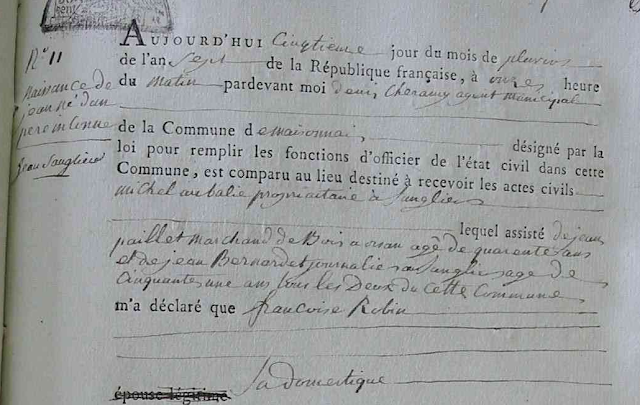 N° 11
naissance de
jean né d'un
pere inconnu
jean Sanglier
AUJOURD'HUI Cinqtieme jour du mois de pluvios
de l'an Sept de la République française, à onze heure
du matin pardevant moi denis Cheramy agent municipal
de la Commune de maisonnai, désigné par la
loi pour remplir les fonctions d'officier de l'état civil dans cette
Commune, est comparu au lieu destiné à recevoir les actes civils
michel aubalie propriétaire à Sangliers
lequel assisté de jean
paillet marchand de Bois a age de quarente ans
et de jean Bernardet journalier au Sanglier age de
Cinquantes une ans tous les Deux du Cette Commune
m'a déclaré que francoise Robin
épouse légitime Sa domestique